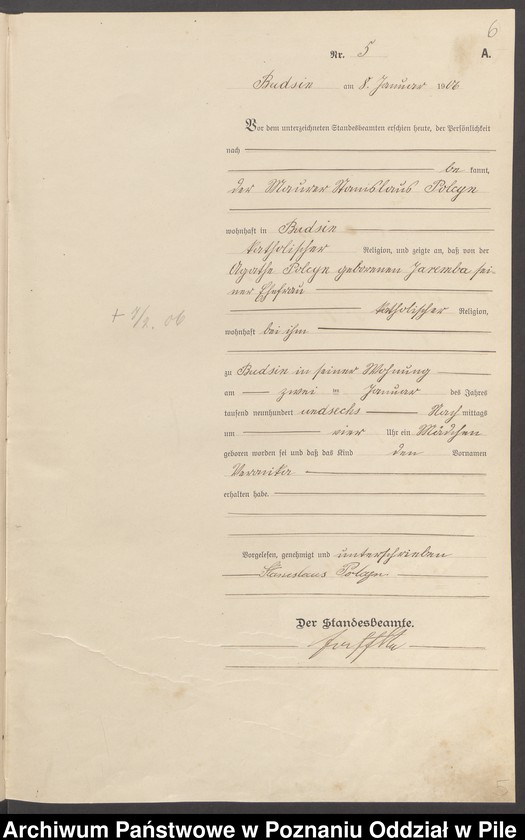 6
Nr. 5 A.
Budsin am 8. Januar 1906
Vor dem unterzeichneten Standesbeamten erschien heute, der Persönlichkeit
nach
be kannt,
der Maurer Stanislaus Polcyn
wohnhaft in Budsin
katholischer Religion, und zeigte an, daß von der
Agathe Polcyn geborenen Jaremba sei-
ner Ehefrau
katholischer Religion,
+ 7/2. 06
wohnhaft bei ihm
zu Budsin in seiner Wohnung
am zwei ten Januar des Jahres
tausend neunhundert undsechs Nach mittags
um vier Uhr ein Mädchen
geboren worden sei und daß das Kind den Vornamen
Veronika
erhalten habe.
Vorgelesen, genehmigt und unterschrieben
Stanislaus Polcyn
Der Standesbeamte.
Archiwum Państwowe w Poznaniu Oddział w Pile